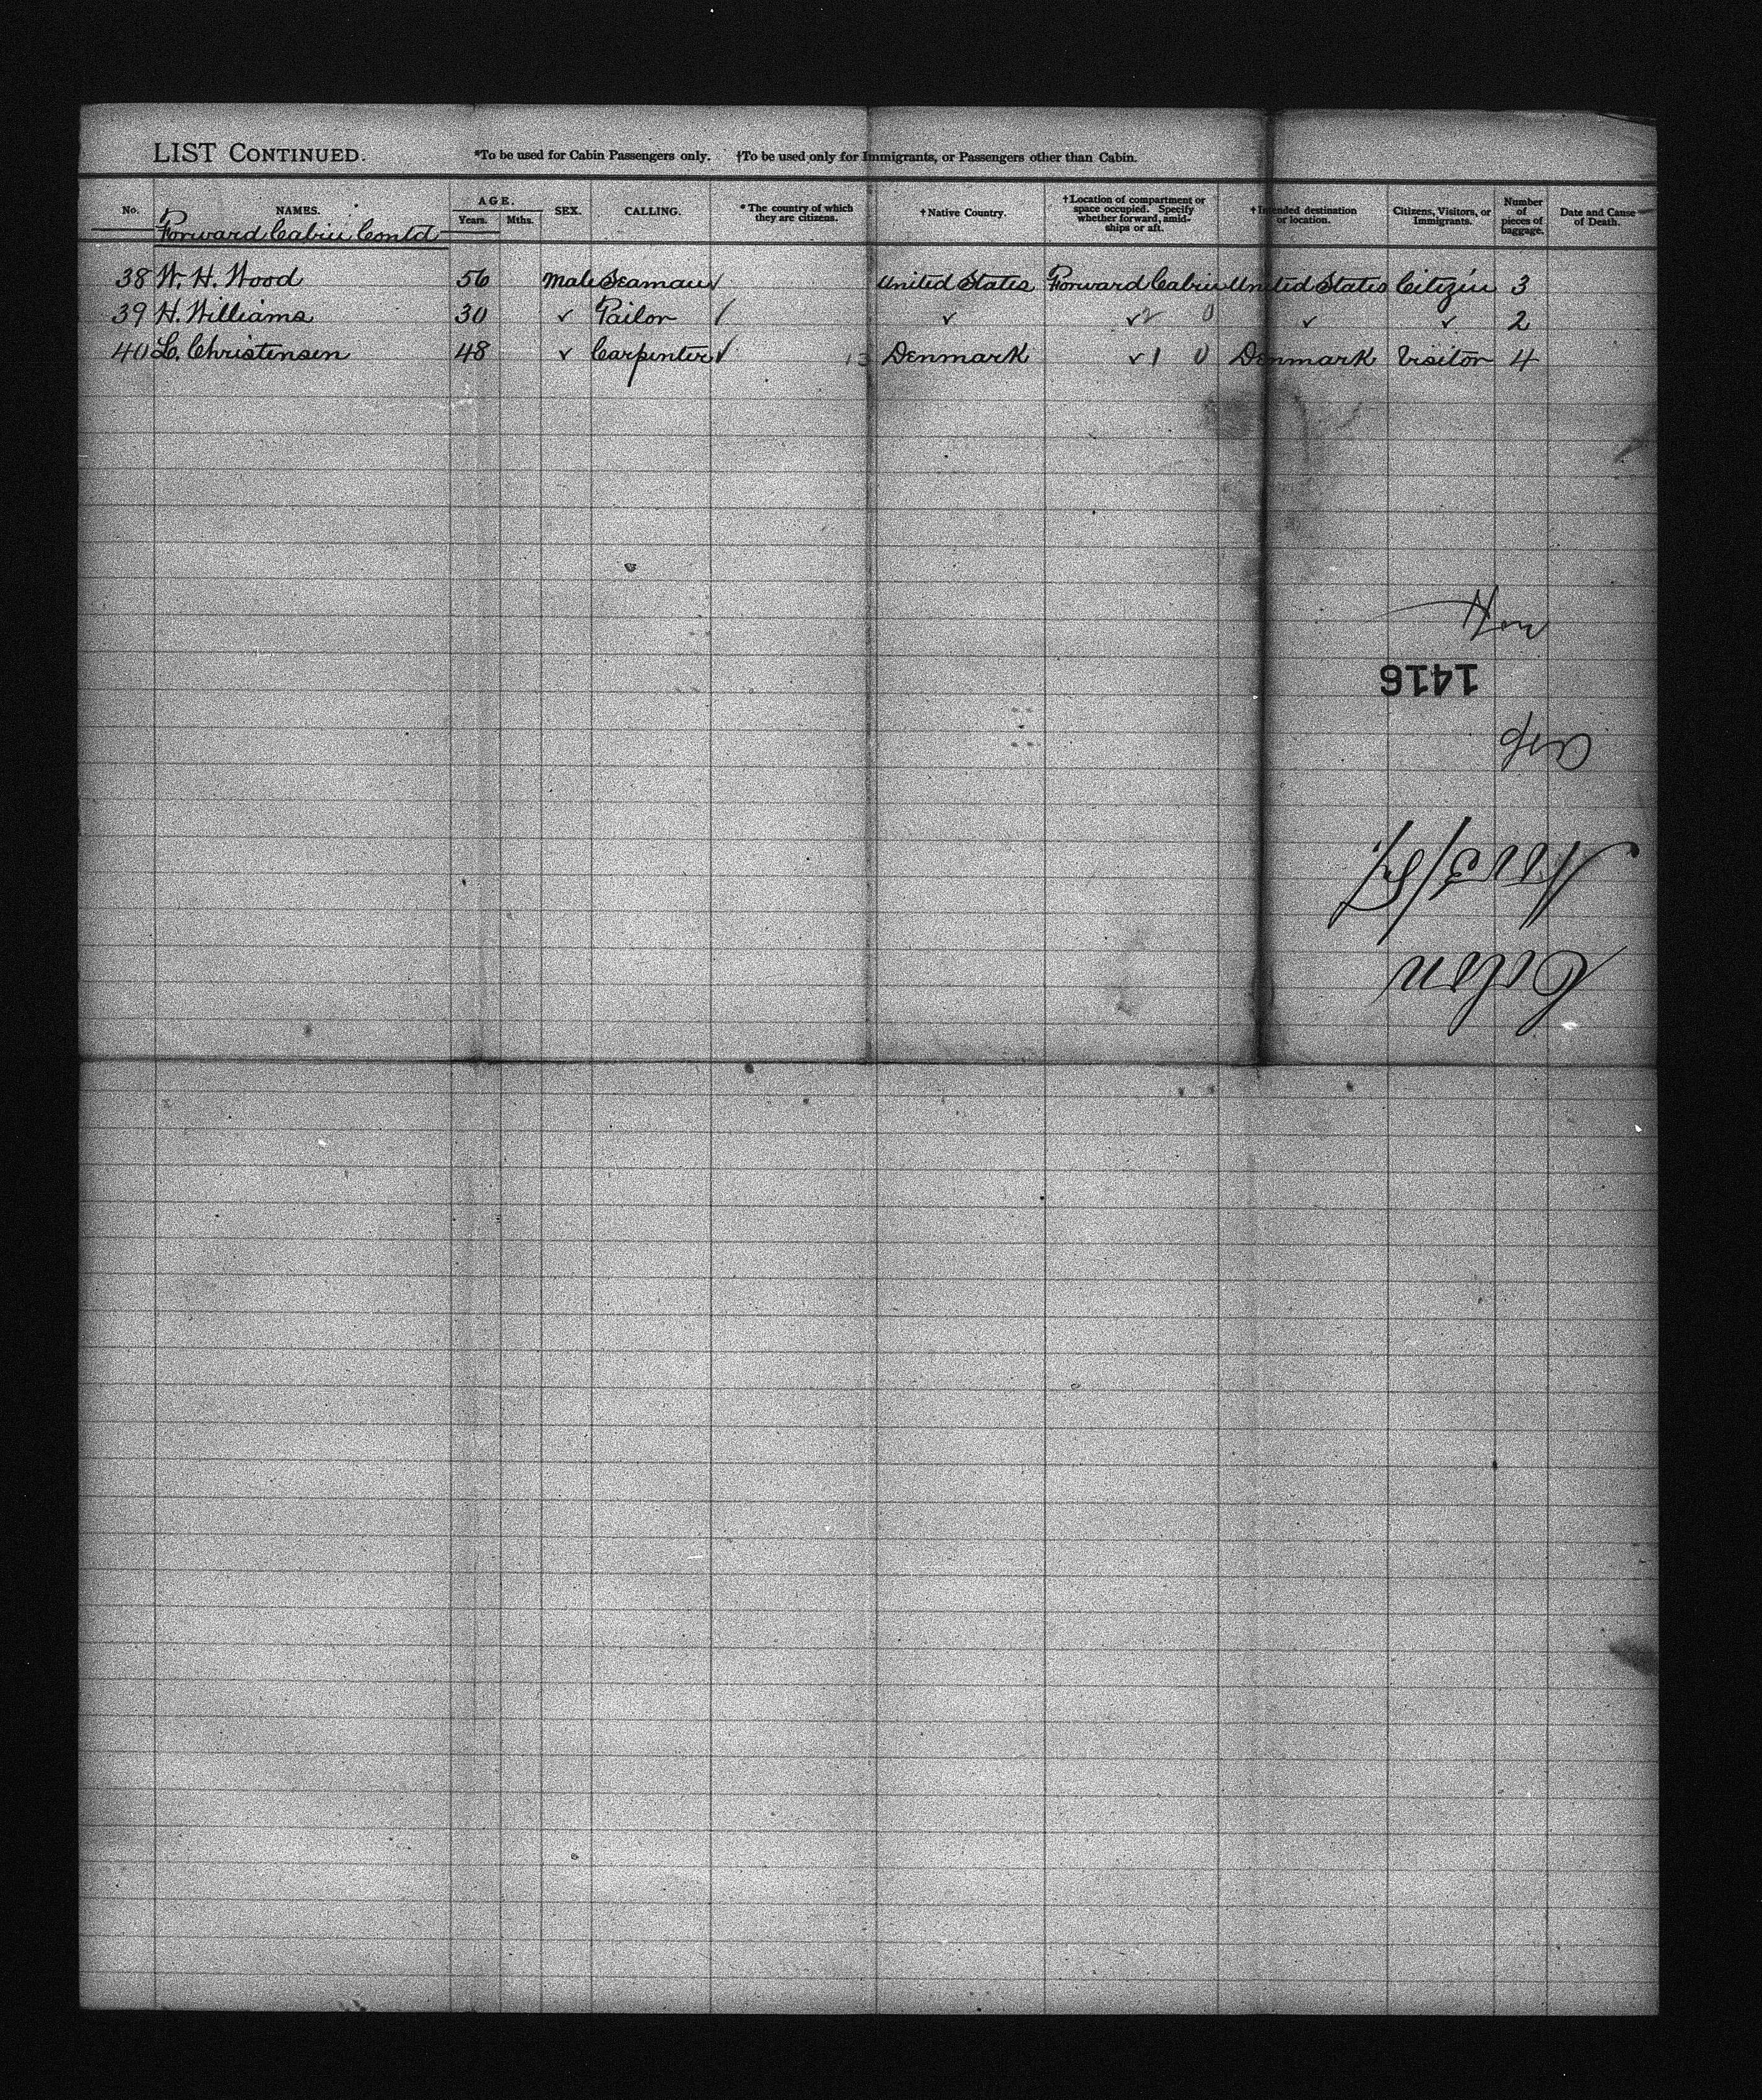 LIST CONTINUED. *To be used for Cabin Passengers only. †To be used only for Immigrants, or Passengers other than Cabin.
No. NAMES. AGE. Years. Mths. SEX. CALLING. * The country of which they are citizens. † Native Country. † Location of compartment or space occupied. Specify whether forward, amidships or aft. † Intended destination or location. Citizens, Visitors, or Immigrants. Number of pieces of baggage. Date and Cause of Death.
Forward Cabin Contd
38 W. H. Wood 56 Male Seaman ✓ United States Forward Cabin United States Citizen 3
39 H. Williams 30 ✓ Tailor ✓ ✓ ✓ 2 0 ✓ ✓ 2
40 L. Christensen 48 ✓ Carpenter ✓ 13 Denmark ✓ 1 0 Denmark Visitor 4
1416
Colon